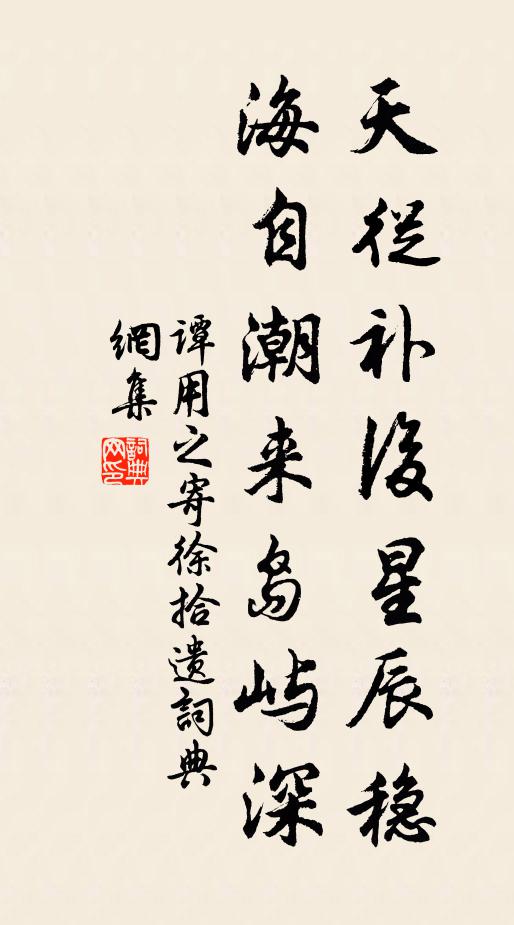 天從补後星辰稳
海自潮来岛屿深
谭用之寄徐拾遗詞典
網集
詞典網印